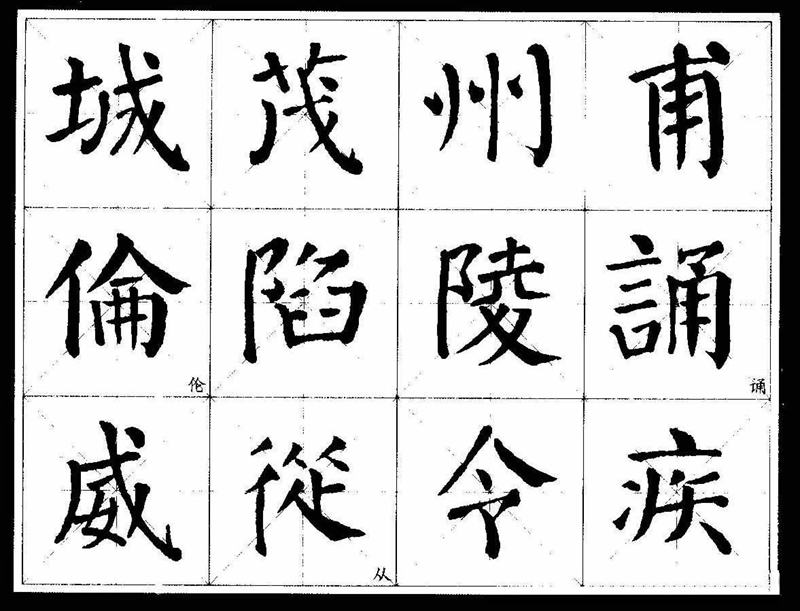 城茂州甫
倫陷陵誦
伦 诵
威從令疾
从